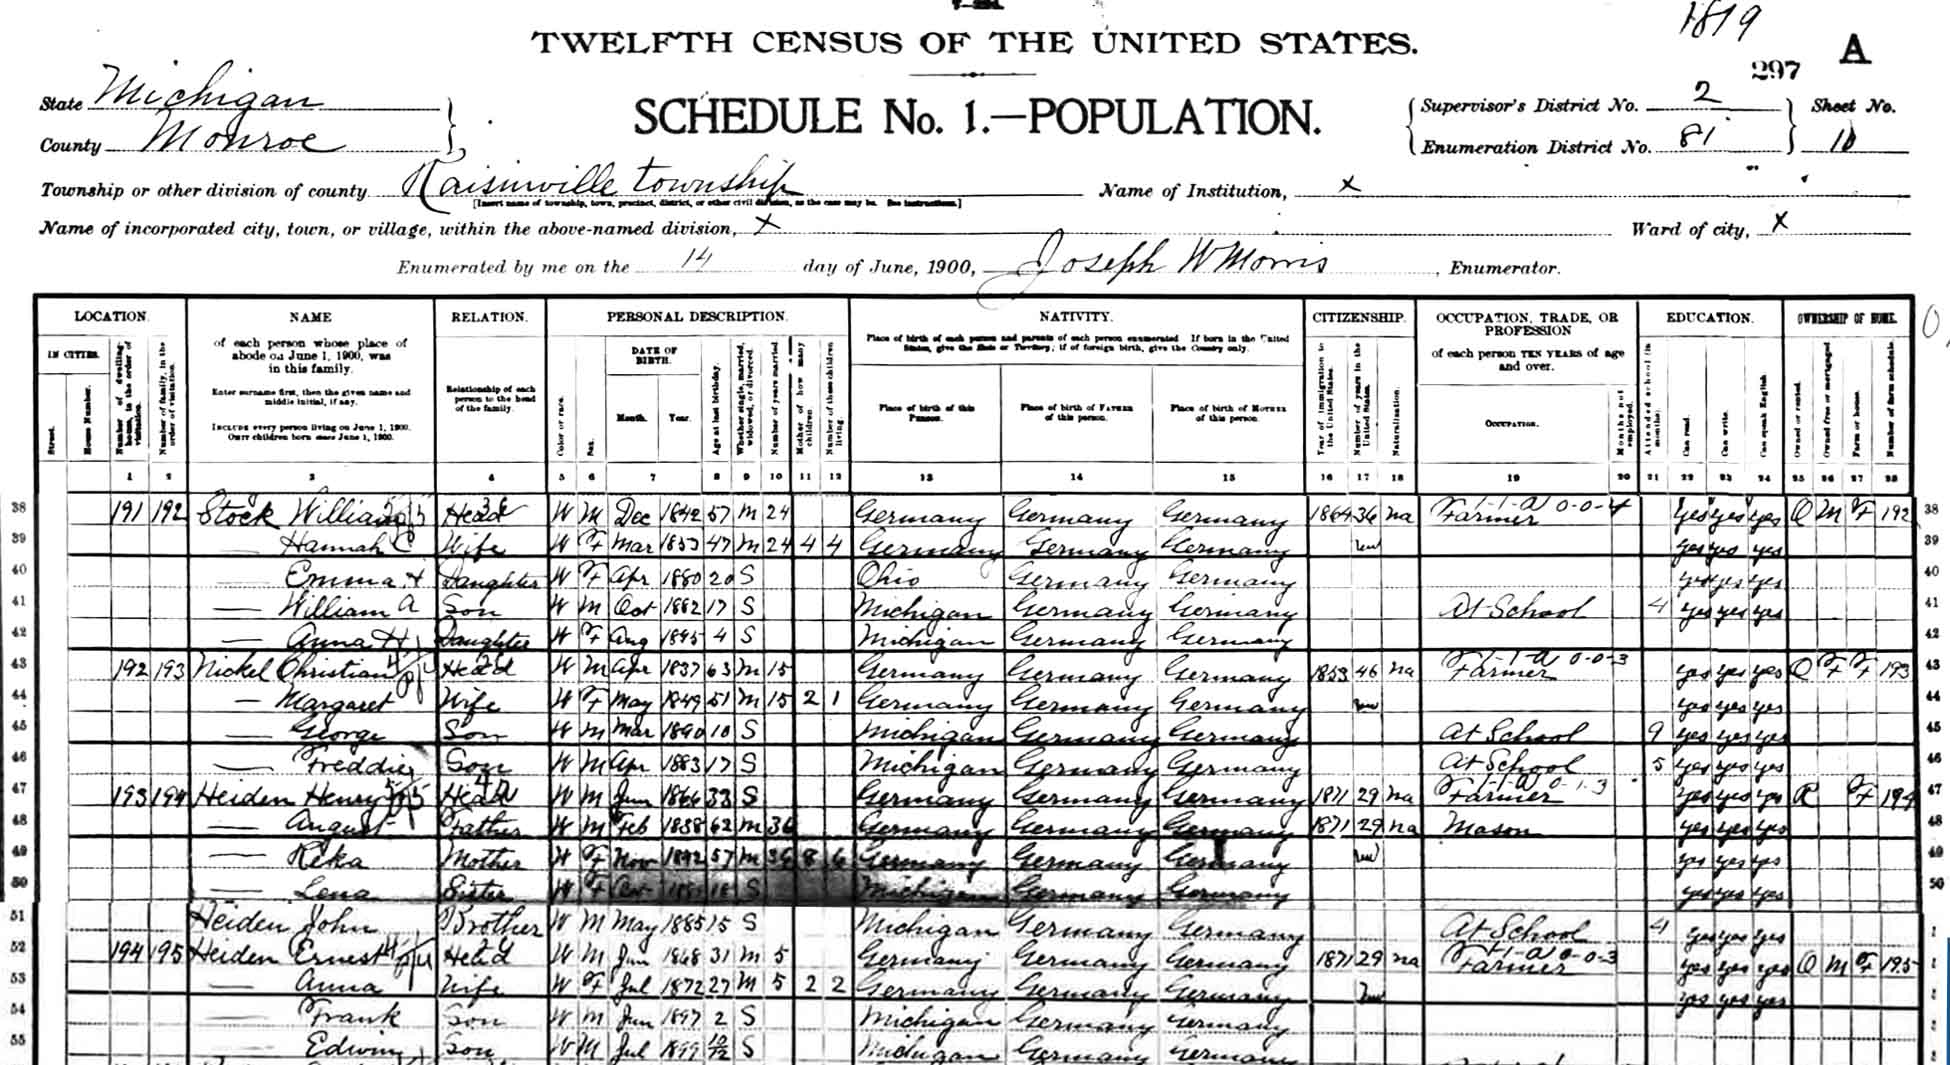 1819
TWELFTH CENSUS OF THE UNITED STATES.
297 A
State Michigan
County Monroe
SCHEDULE No. 1.—POPULATION.
Supervisor's District No. 2 Sheet No.
Enumeration District No. 81 10
Township or other division of county Raisinville township Name of Institution, X
[Insert name of township, town, precinct, district, or other civil division, as the case may be. See instructions.]
Name of incorporated city, town, or village, within the above-named division, X Ward of city, X
Enumerated by me on the 14 day of June, 1900, Joseph W Morris, Enumerator.
LOCATION. NAME RELATION. PERSONAL DESCRIPTION. NATIVITY. CITIZENSHIP. OCCUPATION, TRADE, OR PROFESSION EDUCATION. OWNERSHIP OF HOME.
IN CITIES. Street. House Number. Number of dwelling-house, in the order of visitation. Number of family, in the order of visitation.
of each person whose place of abode on June 1, 1900, was in this family.
Enter surname first, then the given name and middle initial, if any.
INCLUDE every person living on June 1, 1900. OMIT children born since June 1, 1900.
Relationship of each person to the head of the family.
Color or race. Sex. DATE OF BIRTH. Month. Year. Age at last birthday. Whether single, married, widowed, or divorced. Number of years married. Mother of how many children. Number of these children living.
Place of birth of each person and parents of each person enumerated. If born in the United States, give the State or Territory; if of foreign birth, give the Country only.
Place of birth of this Person. Place of birth of Father of this person. Place of birth of Mother of this person.
Year of immigration to the United States. Number of years in the United States. Naturalization.
of each person TEN YEARS of age and over.
Occupation. Months not employed.
Attended school (in months). Can read. Can write. Can speak English.
Owned or rented. Owned free or mortgaged. Farm or house. Number of farm schedule.
1 2 3 4 5 6 7 8 9 10 11 12 13 14 15 16 17 18 19 20 21 22 23 24 25 26 27 28
38 191 192 Stock William Head W M Dec 1842 57 M 24 Germany Germany Germany 1864 36 na Farmer 1-1-a 0-0-4 yes yes yes O M F 192 38
39 — Hannah C Wife W F Mar 1853 47 M 24 4 4 Germany Germany Germany yes yes yes 39
40 — Emma H Daughter W F Apr 1880 20 S Ohio Germany Germany yes yes yes 40
41 — William A Son W M Oct 1882 17 S Michigan Germany Germany At School 4 yes yes yes 41
42 — Anna H Daughter W F Aug 1895 4 S Michigan Germany Germany 42
43 192 193 Nickel Christian Head W M Apr 1837 63 M 15 Germany Germany Germany 1853 46 na Farmer 1-1-a 0-0-3 yes yes yes O F F 193 43
44 — Margaret Wife W F May 1849 51 M 15 2 1 Germany Germany Germany yes yes yes 44
45 — George Son W M Mar 1890 10 S Michigan Germany Germany At School 9 yes yes yes 45
46 — Freddie Son W M Apr 1883 17 S Michigan Germany Germany At School 5 yes yes yes 46
47 193 194 Heiden Henry Head W M Jun 1866 33 S Germany Germany Germany 1871 29 na Farmer 1-1-a 0-1-3 yes yes yes R F 194 47
48 — August Father W M Feb 1838 62 M 36 Germany Germany Germany 1871 29 na Mason yes yes yes 48
49 — Reka Mother W F Nov 1842 57 M 36 8 6 Germany Germany Germany yes yes yes 49
50 — Lena Sister W F 18 S Michigan Germany Germany yes yes yes 50
51 Heiden John Brother W M May 1885 15 S Michigan Germany Germany At School 4 yes yes yes
52 194 195 Heiden Ernest Head W M Jun 1868 31 M 5 Germany Germany Germany 1871 29 na Farmer 1-1-a 0-0-3 yes yes yes O M F 195
53 — Anna Wife W F Jul 1872 27 M 5 2 2 Germany Germany Germany yes yes yes
54 — Frank Son W M Jun 1897 2 S Michigan Germany Germany
55 — Edwin Son W M Jul 1899 10/12 S Michigan Germany Germany